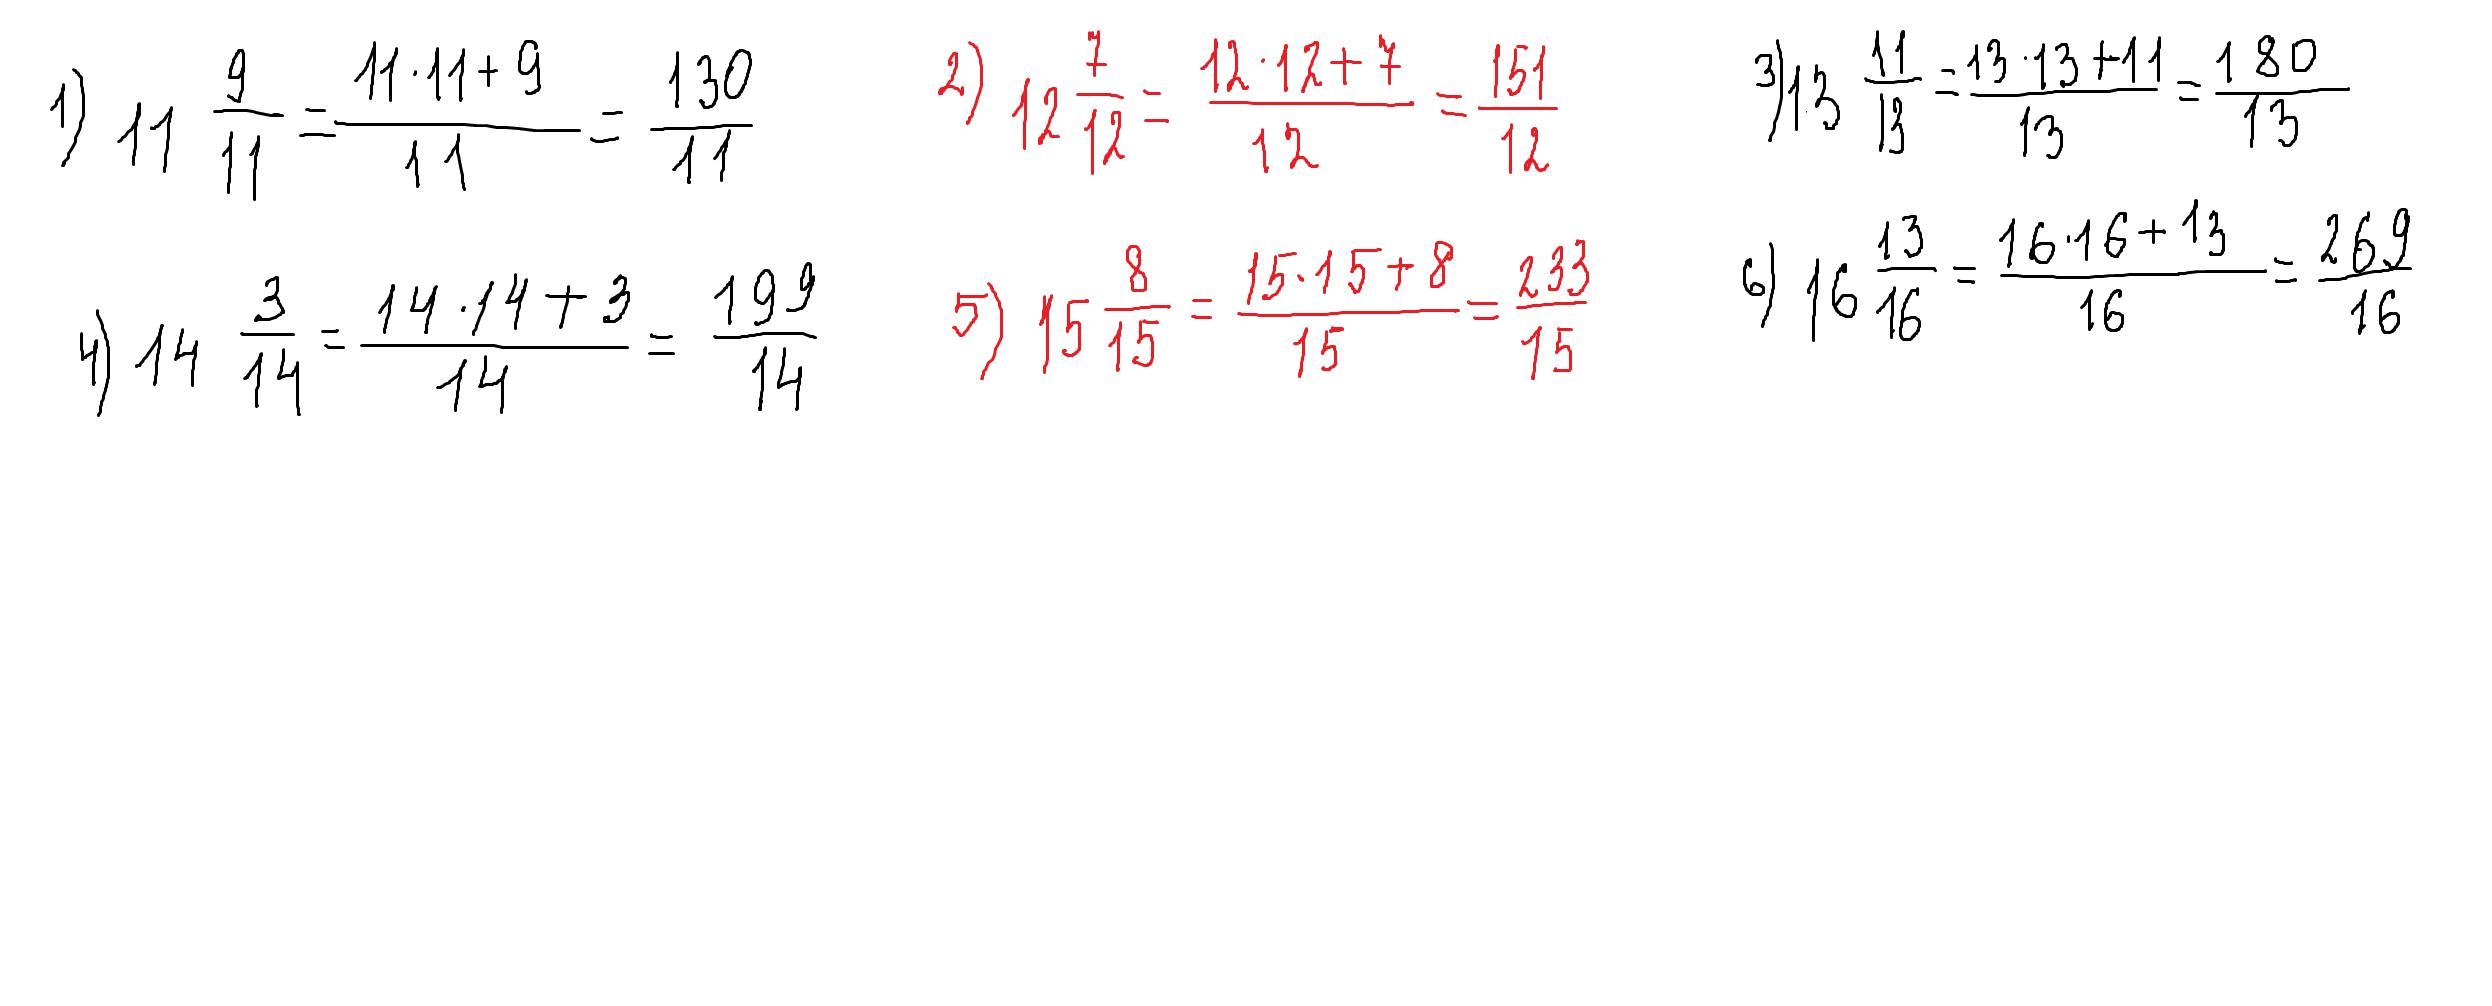 1) 11 9/11 = (11·11+9)/11 = 130/11
2) 12 7/12 = (12·12+7)/12 = 151/12
3) 13 11/13 = (13·13+11)/13 = 180/13
4) 14 3/14 = (14·14+3)/14 = 199/14
5) 15 8/15 = (15·15+8)/15 = 233/15
6) 16 13/16 = (16·16+13)/16 = 269/16